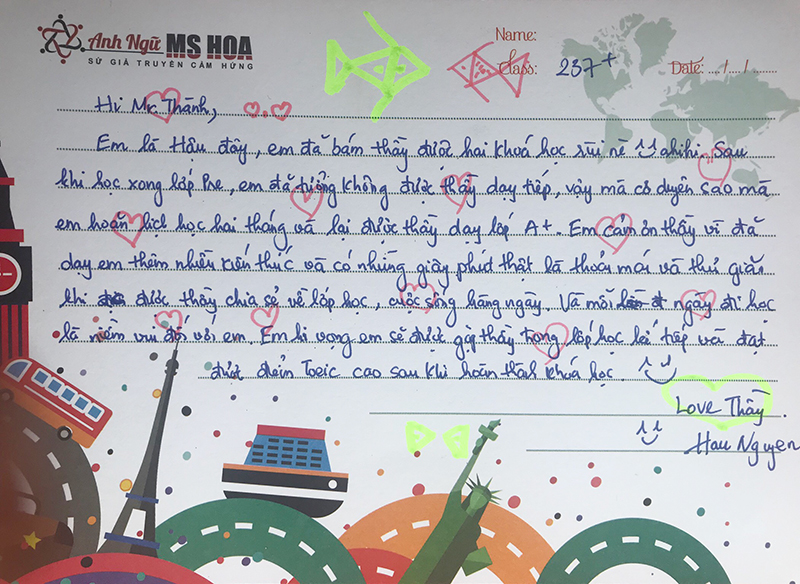 Anh Ngữ MS HOA
SỨ GIẢ TRUYỀN CẢM HỨNG
Name:
Class: 237+
Date: ..../..../........
Hi Mr. Thành,
Em là Hậu đây, em đã bám thầy được hai khoá học rùi nè ahihi. Sau
khi học xong lớp Pre, em đã tưởng không được thầy dạy tiếp, vậy mà có duyên sao mà
em hoãn lịch học hai tháng và lại được thầy dạy lớp A+. Em cảm ơn thầy vì đã
dạy em thêm nhiều kiến thức và có những giây phút thật là thoải mái và thư giãn
khi được thầy chia sẻ về lớp học, cuộc sống hằng ngày. Và mỗi ngày đi học
là niềm vui đối với em. Em hi vọng em sẽ được gặp thầy trong lớp học kế tiếp và đạt
được điểm Toeic cao sau khi hoàn thành khoá học.
Love Thầy
Hau Nguyen